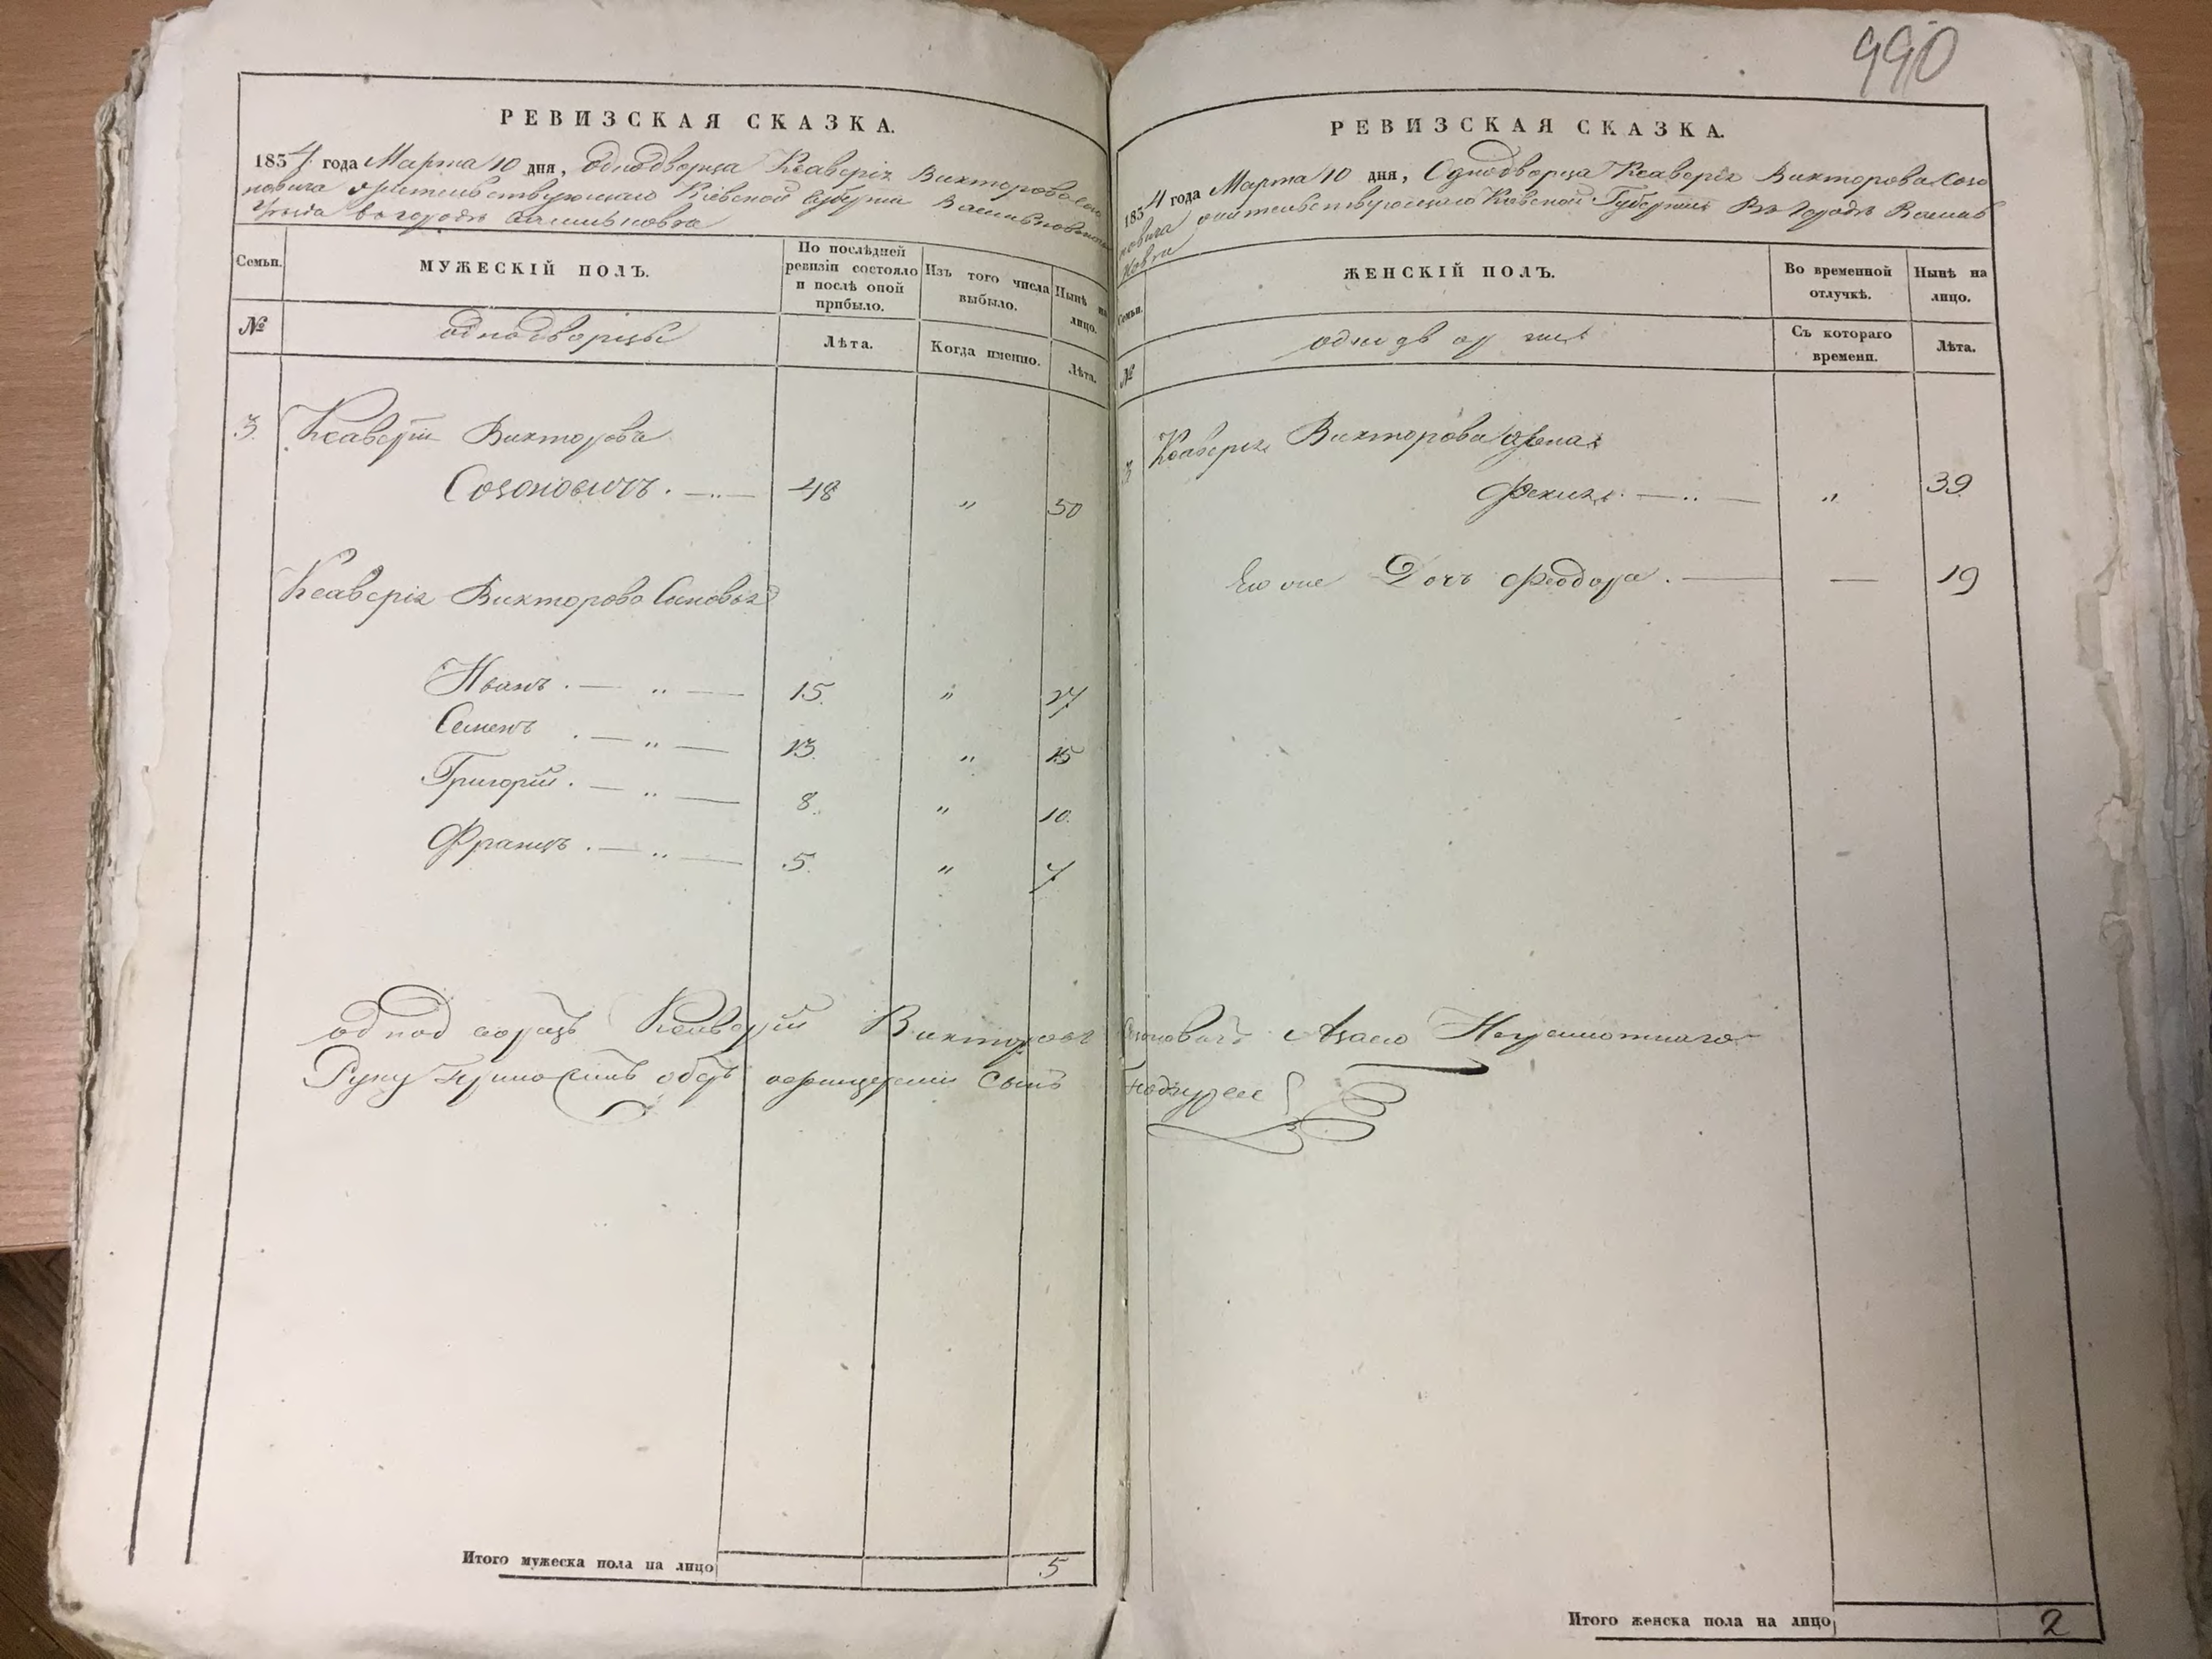 990
РЕВИЗСКАЯ СКАЗКА.
1854 года Марта 10 дня, Однодворца Ксаверія Викторова Созо
новича жительствующаго Кіевской Губерніи Васильковскаго
Уезда в городе Василькова
Семьи.
МУЖЕСКІЙ ПОЛЪ.
По послѣдней ревизіи состояло и послѣ оной прибыло.
Изъ того числа выбыло.
Нынѣ на лицо.
№
однодворцы
Лѣта.
Когда именно.
Лѣта.
3. Ксаверій Викторовъ
Созоновичъ. 48 " 50
Ксаверія Викторова Сыновья
Иванъ. 15. " 17
Семенъ 13. " 15
Григорій. 8. " 10.
Францъ. 5. " 7
Итого мужеска пола на лицо 5
РЕВИЗСКАЯ СКАЗКА.
1854 года Марта 10 дня, Однодворца Ксаверія Викторова Созо
новича жительствующаго Кіевской Губерніи Въ Городѣ Василь
ковѣ
Семьи.
ЖЕНСКІЙ ПОЛЪ.
Во временной отлучкѣ.
Нынѣ на лицо.
№
Съ котораго времени.
Лѣта.
3 Ксаверія Викторова жена
" 39
Его же Дочь Феодора. — 19
Однодворецъ Ксаверій Викторовъ Созоновичъ а за его Неграмотнаго
Руку приложилъ обер офицерскій Сынъ
Итого женска пола на лицо 2